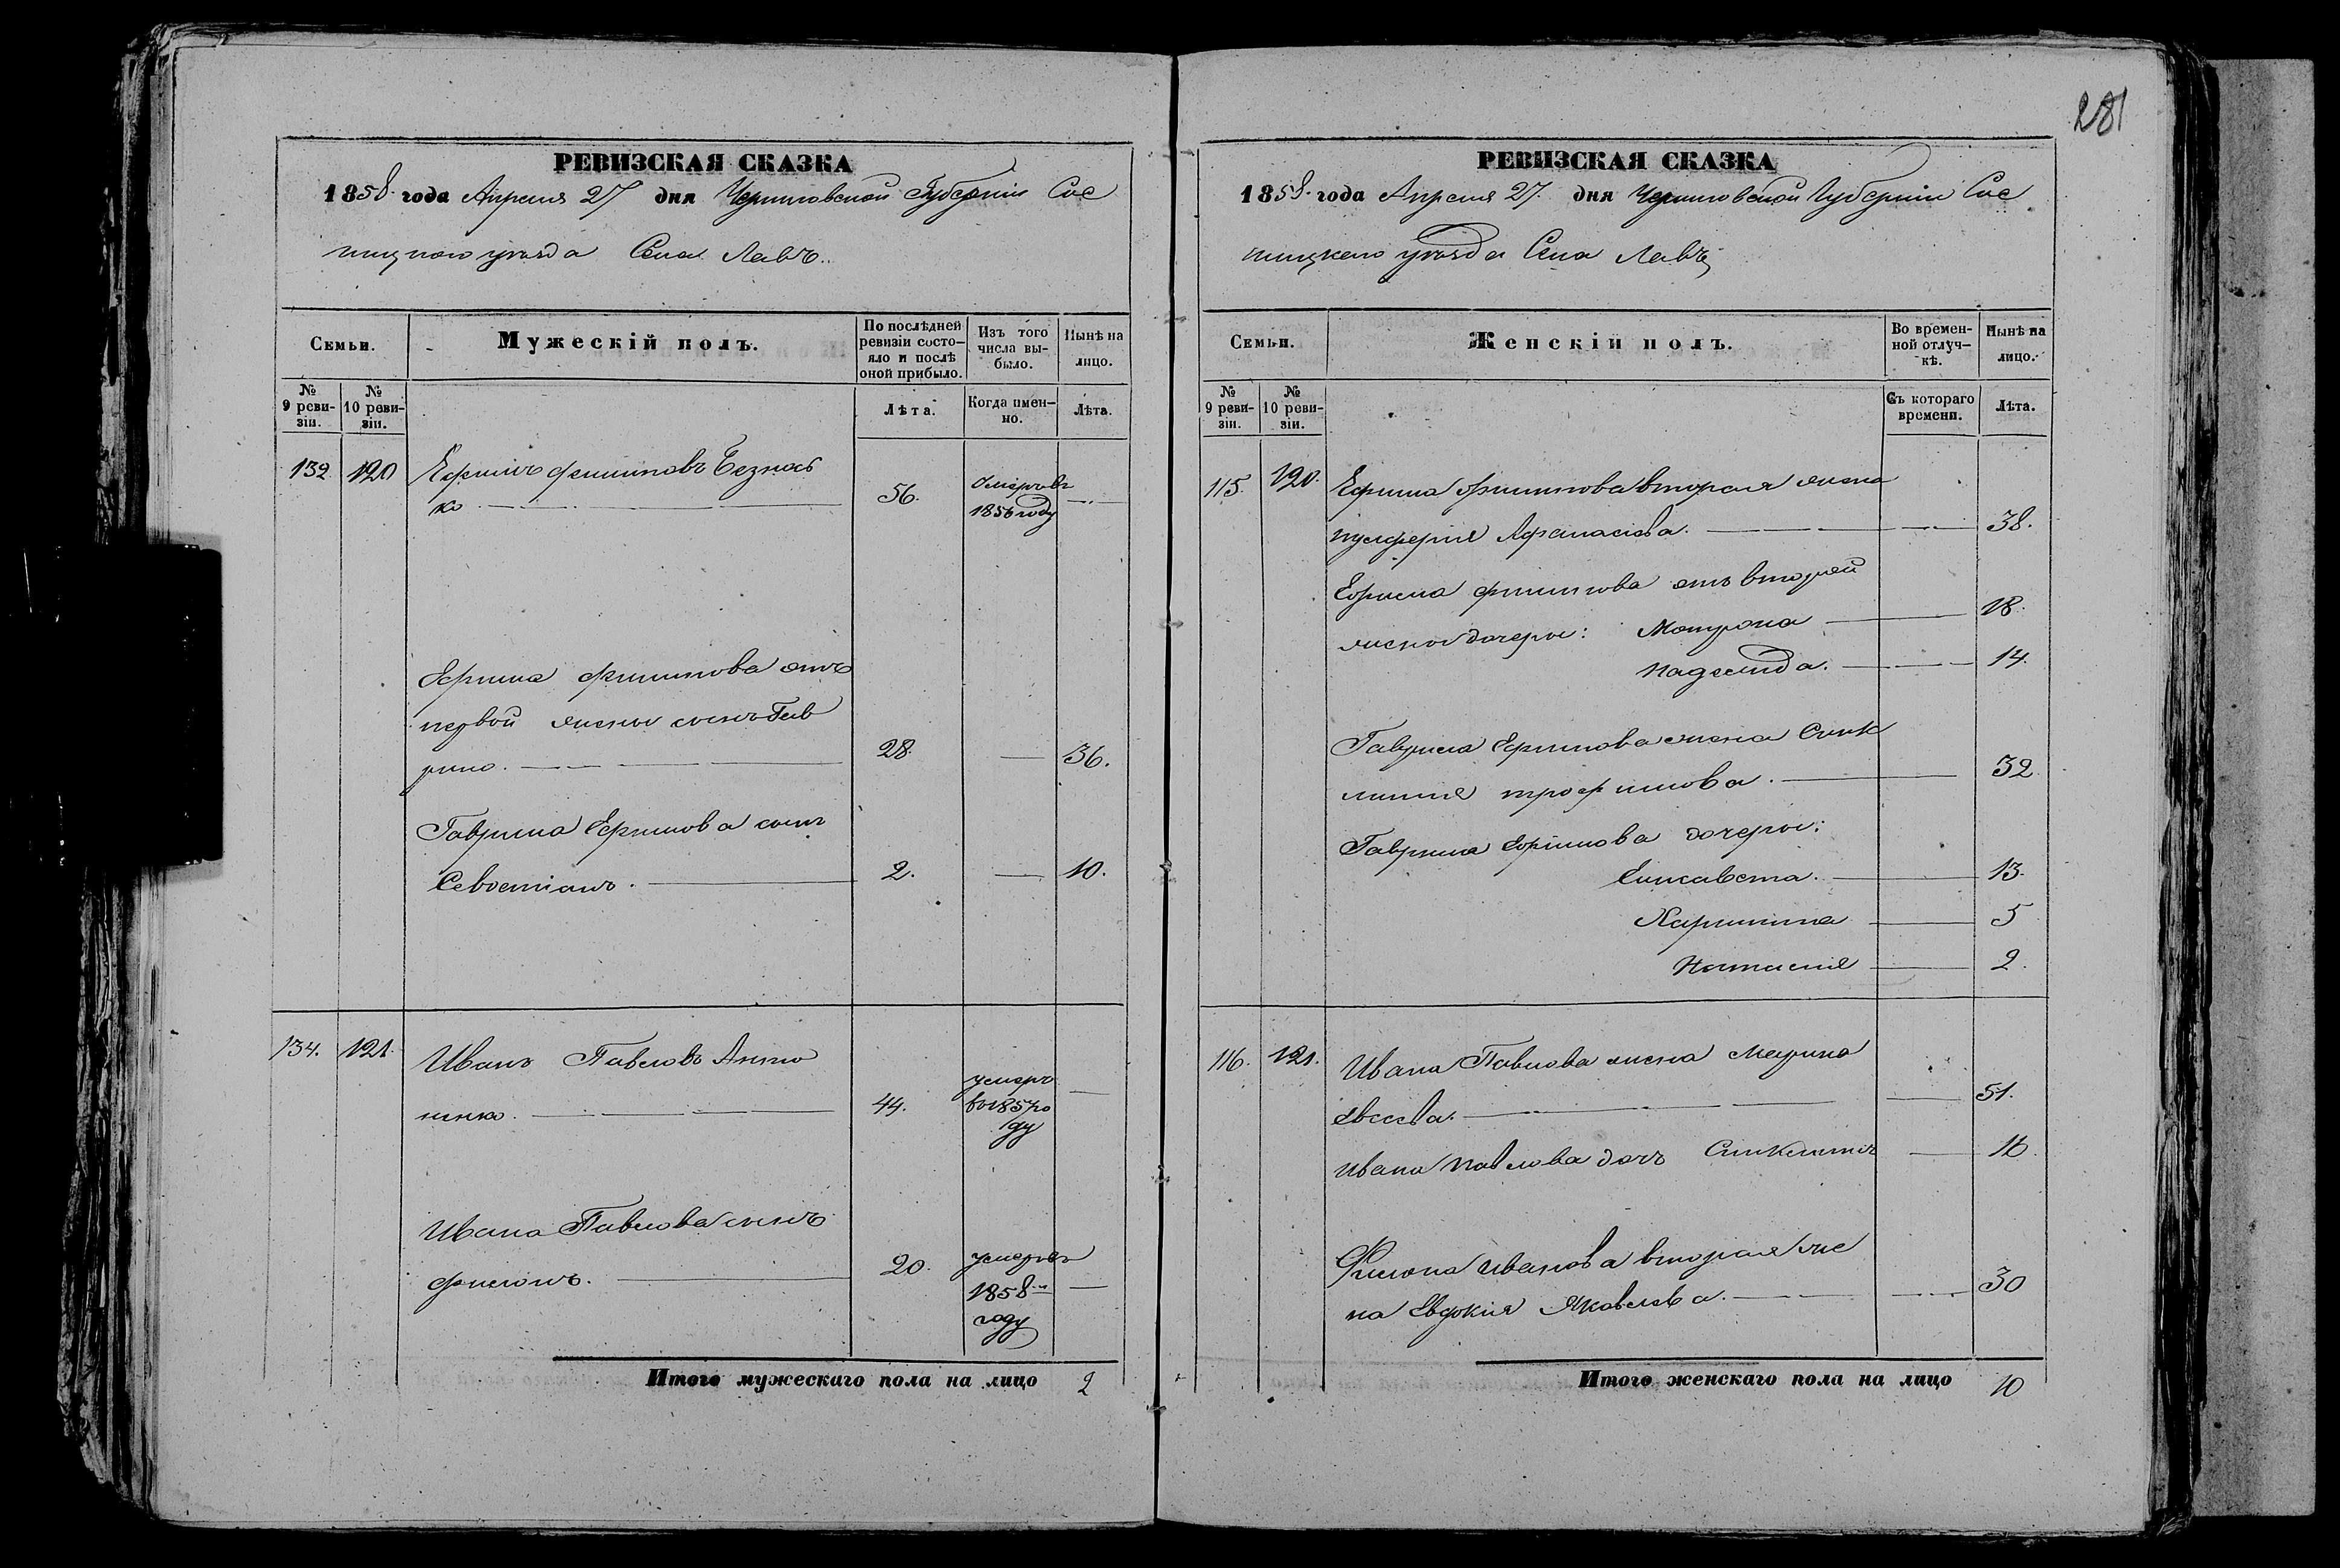 281
РЕВИЗСКАЯ СКАЗКА
1858 года Апреля 27 дня Черниговской Губерніи Сос
ницкого уѣзда Села Лавъ.
Семьи.
Мужескій полъ.
По послѣдней ревизіи состояло и послѣ оной прибыло.
Изъ того числа выбыло.
Нынѣ на лицо.
№ 9 ревизіи.
№ 10 ревизіи.
Лѣта.
Когда именно.
Лѣта.
132 120 Ефимъ Филиповъ Безнос
ко. 56. умеръ въ
1856 году
Ефима Филипова отъ
первой жены сынъ Гав
рило. 28. 36.
Гаврила Ефимова сынъ
Севостіанъ. 2. 10.
134. 121. Иванъ Павловъ Анто
ненко. 44. умеръ
въ 1857 го
ду
Ивана Павлова сынъ
Филонъ. 20. умеръ въ
1858-м
году
Итого мужескаго пола на лицо 2
РЕВИЗСКАЯ СКАЗКА
1858 года Апреля 27. дня Черниговской Губерніи Сос
ницкого уѣзда Села Лавъ
Семьи.
Женскій полъ.
Во временной отлучкѣ.
Нынѣ на лицо.
№ 9 ревизіи.
№ 10 ревизіи.
Съ котораго времени.
Лѣта.
115. 120. Ефима Филипова вторая жена
Пулферія Афанасіева. 38.
Ефима Филипова отъ второй
жены дочеры: Мотрона 18.
Надежда. 14.
Гаврила Ефимова жена Синк
литія Трофимова. 32
Гаврила Ефимова дочеры:
Елисавета. 13.
Харитина 5
Настасія 2.
116. 121. Ивана Павлова жена Марина
Евсеева. 51.
Ивана Павлова дочь 16.
Филона Иванова вторая же
на Евдокія Яковлева. 30
Итого женскаго пола на лицо 10